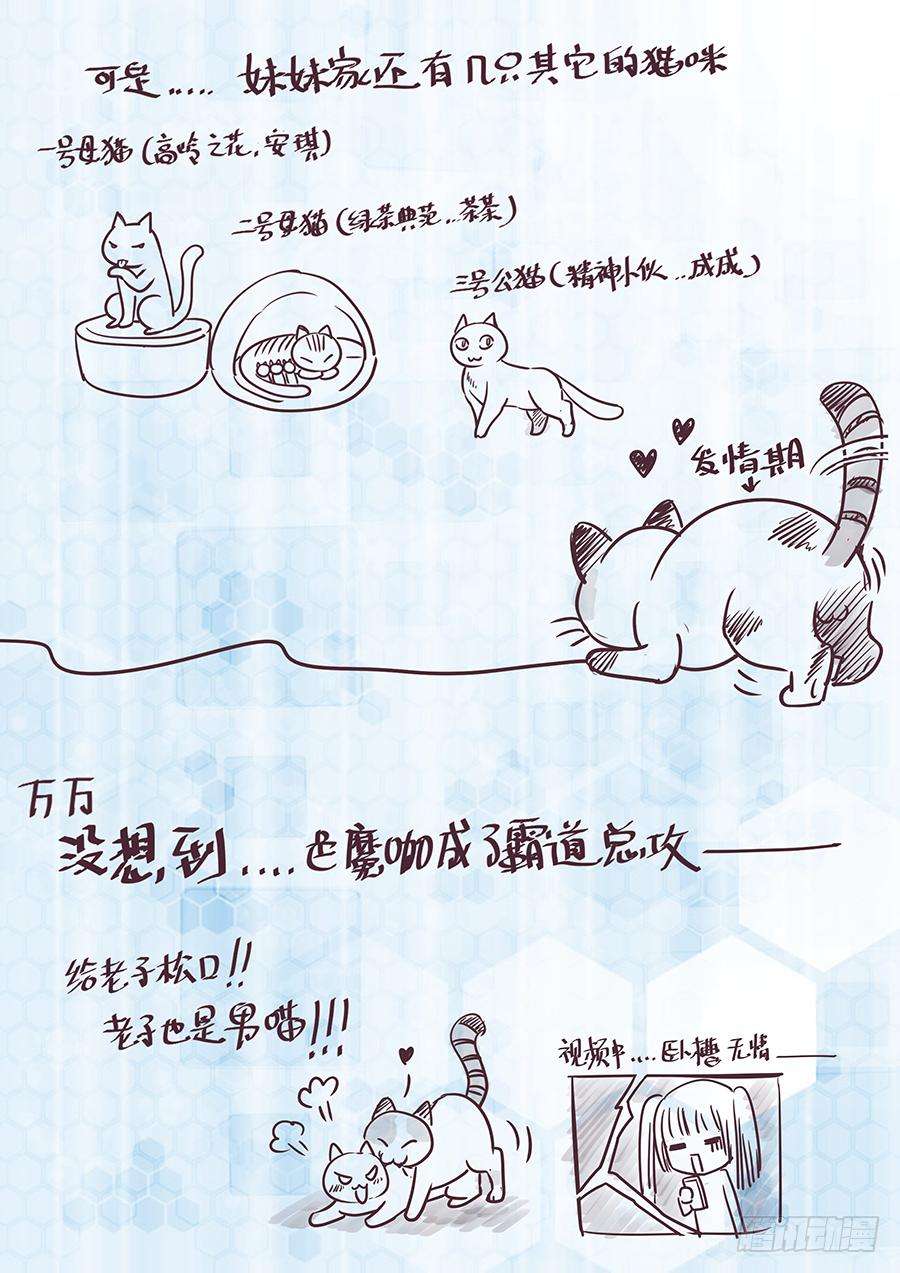 可是..... 妹妹家还有几只其它的猫咪
一号母猫(高岭之花，安琪)
二号母猫(绿茶典范..茶茶)
三号公猫(精神小伙..成成)
发情期
万万
没想到....芒魔咖成了霸道总攻——
给老子松口!!
老子也是男喵!!!
视频中....卧槽 无情——
腾讯动漫